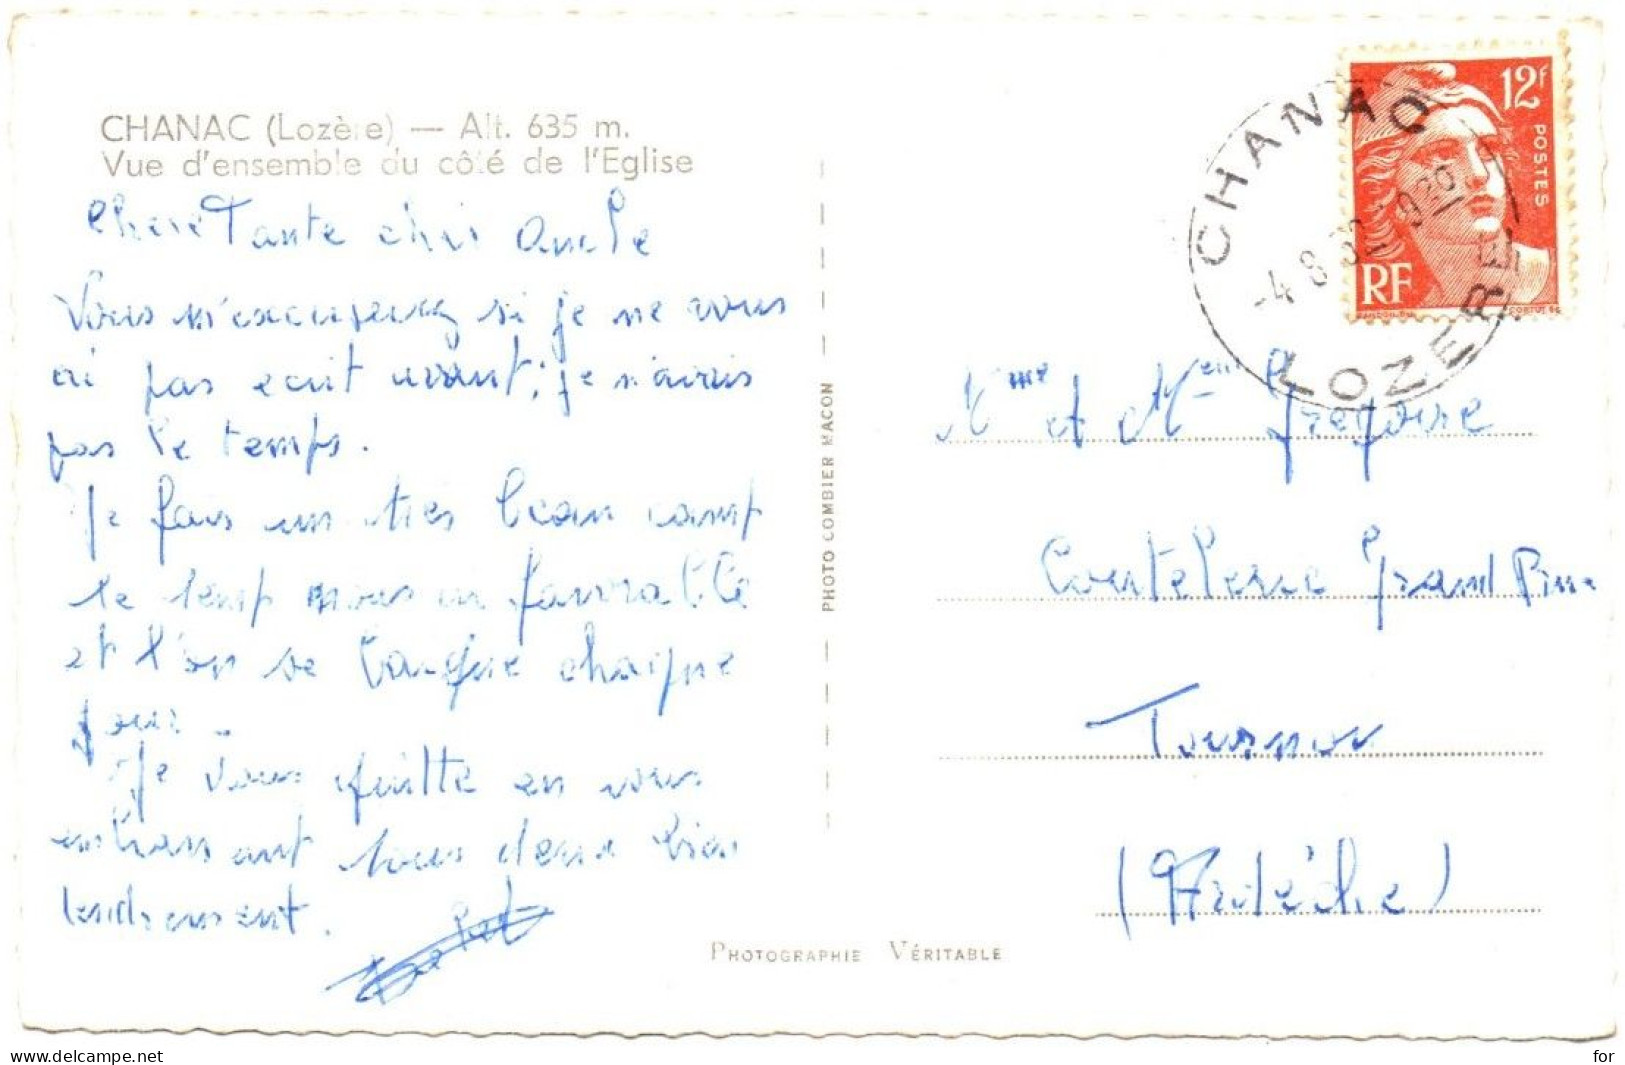 CHANAC (Lozère) — Alt. 635 m.
Vue d'ensemble du côté de l'Eglise
Chere Tante cher Oncle
Vous m'excuserez si je ne vous
ai pas ecrit avant; je n'avais
pas le temps.
Je fais un très beau camp
le temp nous est favorable
et l'on se baigne chaque
jour.
Je vous quitte en vous
embrassant tous deux bien
tendrement.
PHOTO COMBIER MACON
PHOTOGRAPHIE VÉRITABLE
12f
POSTES
RF
CHANAC
-4-8
LOZERE
Mme et Mr Gregoire
Grand
Tournon
(Ardéche)
www.delcampe.net
for